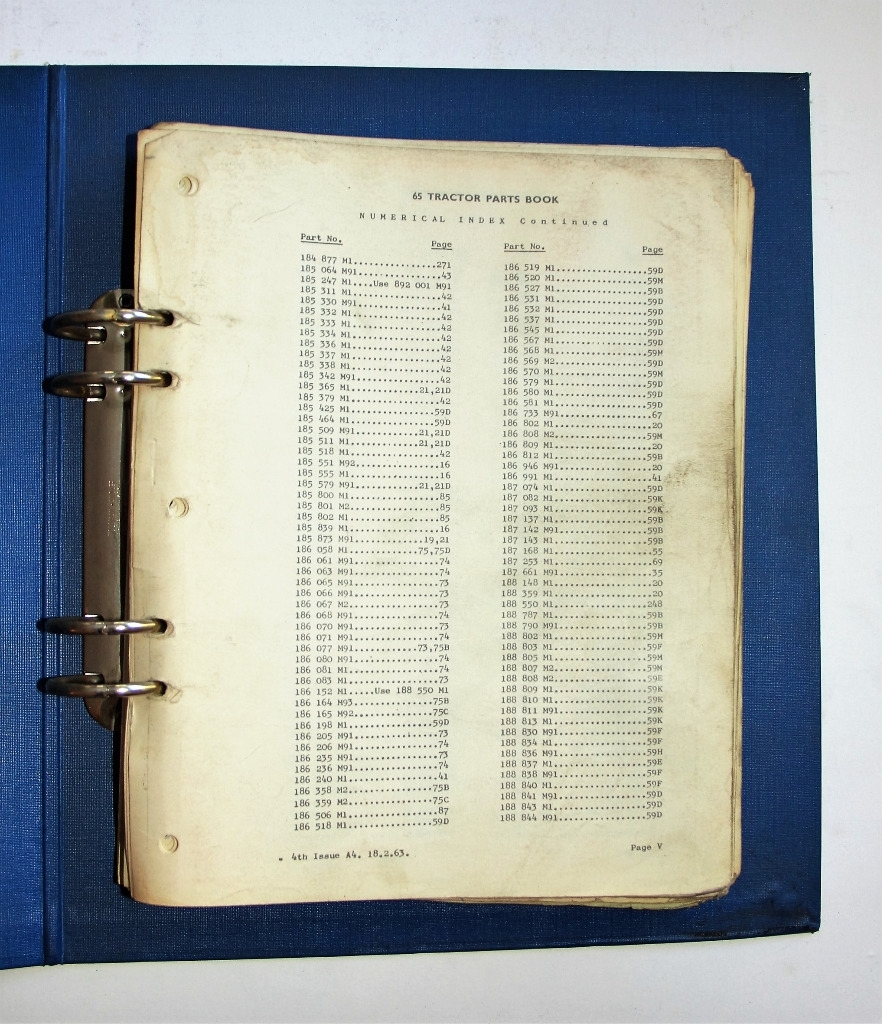 65 TRACTOR PARTS BOOK
NUMERICAL INDEX Continued
Part No. Page
184 877 M1................271
185 064 M91...............43
185 247 M1....Use 892 001 M91
185 311 M1................42
185 330 M91...............41
185 332 M1................42
185 333 M1................42
185 334 M1................42
185 336 M1................42
185 337 M1................42
185 338 M1................42
185 342 M91...............42
185 365 M1............21,21D
185 379 M1................42
185 425 M1...............59D
185 464 M1...............59D
185 509 M91...........21,21D
185 511 M1............21,21D
185 518 M1................42
185 551 M92...............16
185 555 M1................16
185 579 M91...........21,21D
185 800 M1................85
185 801 M2................85
185 802 M1................85
185 839 M1................16
185 873 M91............19,21
186 058 M1............75,75D
186 061 M91...............74
186 063 M91...............74
186 065 M91...............73
186 066 M91...............73
186 067 M2................73
186 068 M91...............74
186 070 M91...............73
186 071 M91...............74
186 077 M91...........73,75B
186 080 M91...............74
186 081 M1................74
186 083 M1................73
186 152 M1.....Use 188 550 M1
186 164 M93..............75B
186 165 M92..............75C
186 198 M1...............59D
186 205 M91...............73
186 206 M91...............74
186 235 M91...............73
186 236 M91...............74
186 240 M1................41
186 358 M2...............75B
186 359 M2...............75C
186 506 M1................87
186 518 M1...............59D
Part No. Page
186 519 M1.................59D
186 520 M1.................59M
186 527 M1.................59B
186 531 M1.................59D
186 532 M1.................59D
186 537 M1.................59D
186 545 M1.................59D
186 567 M1.................59D
186 568 M1.................59M
186 569 M2.................59D
186 570 M1.................59M
186 579 M1.................59D
186 580 M1.................59D
186 581 M1.................59D
186 733 M91.................67
186 802 M1..................20
186 808 M2.................59M
186 809 M1..................20
186 812 M1.................59B
186 946 M91.................20
186 991 M1..................41
187 074 M1.................59D
187 082 M1.................59K
187 093 M1.................59K
187 137 M1.................59B
187 142 M91................59B
187 143 M1.................59B
187 168 M1..................55
187 253 M1..................69
187 661 M91.................35
188 148 M1..................20
188 359 M1..................20
188 550 M1.................248
188 787 M1.................59B
188 790 M91................59B
188 802 M1.................59M
188 803 M1.................59F
188 805 M1.................59M
188 807 M2.................59M
188 808 M2.................59E
188 809 M1.................59K
188 810 M1.................59K
188 811 M91................59K
188 813 M1.................59K
188 830 M91................59F
188 834 M1.................59F
188 836 M91................59H
188 837 M1.................59E
188 838 M91................59F
188 840 M1.................59F
188 841 M91................59D
188 843 M1.................59D
188 844 M91................59D
4th Issue A4. 18.2.63.
Page V